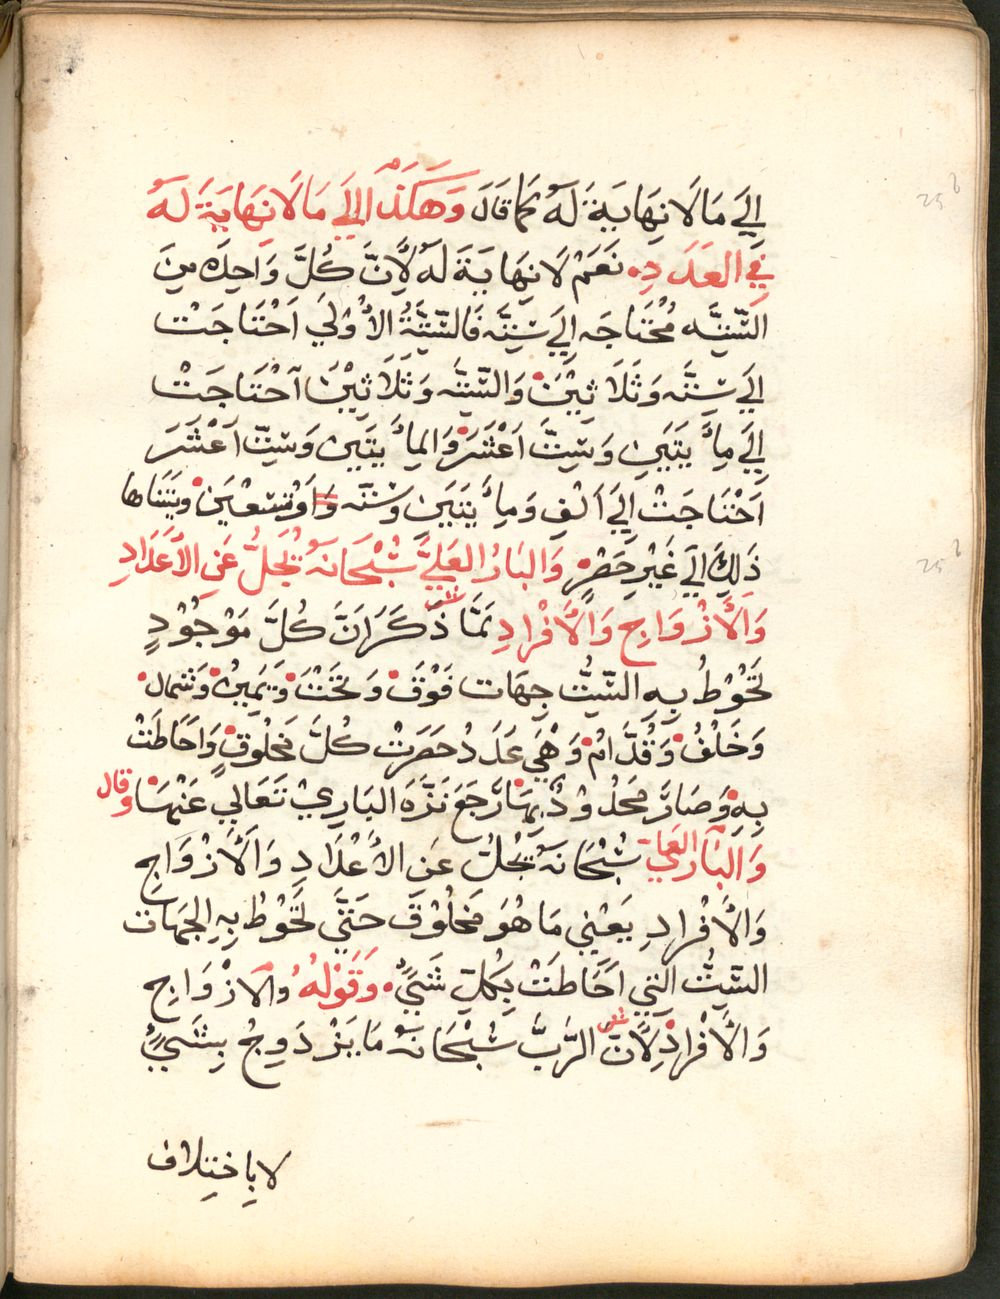 اِلَي مَا لَا نِهَايَةَ لَهُ كَمَا قَالَ وَهَكَذَا اِلَي مَا لَا نِهَايَةَ لَهُ
فِي العَدَدِ نَعَمْ لَا نِهَايَةَ لَهُ لِأَنَّ كُلَّ وَاحِدَه مِنَ
السِّتِّه مُحْتَاجَه اِلَي سِتَّه فَالسِّتَّةُ الأُوْلَي اَحْتَاجَتْ
اِلَي سِتَّه وَثَلَاثِيْنَ وَالسِّتَّه وَثَلَاثِيْنَ اَحْتَاجَتْ
اِلَي مِأَيتَينِ وَسِتَّ اَعْشَرَ وَالمِأَيتَينِ وَسِتَّ اَعْشَرَ
اَحْتَاجَتْ اِلَي اَلْفِ وَمِأَيتَينَ وَسِتَّه وَاَوْتِسْعِينَ ويتناها
ذَلِكَ اِلَي غَيْرِ حَصْرٍ وَالبَارُ العَلِيَّ سُبْحَانَهُ يَجَلُّ عَنِ الأَعْدَادِ
وَالأَزْوَاجِ وَالأَفْرادِ لمَّا ذَكَرَ اَنَّ كُلَّ مَوْجُوْدٍ
تَحُوْطُ بِهِ السِّتُّ جِهَات فَوْقَ وَتَحْتَ وَيَمِيْنُ وَشمال
وَخَلْفُ وَقُدَّامُ وَهْيَ عَدَدْ حَصَرَتْ كُلَّ مَخْلُوقٍ وَاَحَاطَتْ
بِهِ وَصَارَ مَحْدُوْدٌ بِهَا رَجَعَ نَزَّهَ البَارِيْ تَعَالِي عَنْهَا وقال
وَالبَارُ العَلي سُبْحَانَهُ يَجُلُّ عَنِ الأَعْدَادِ وَالأَزْوَاجِ
وَالأَفْرادِ يَعْنِي مَا هُوَ مَخْلُوْقَ حَتَّي تَحُوْطُ بِهِ الجِهَات
السِّتُّ الَّتِي اَحَاطَتْ بِكُلِّ شَيٍّ وَقَوْلُهُ وَالازْوَاجِ
وَالأَفْرادْ لِأَنَّ الرَّبَّ سُبْحَانَهُ مَا يَزْدَوِجُ بِشَيٍّ
لا بِاختِلاف
25 b
25 b